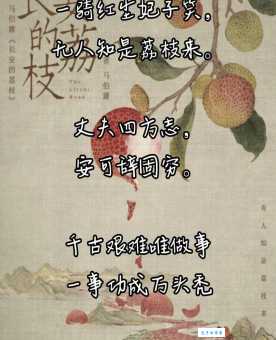 长安的荔枝
马伯庸《长安的荔枝》
The Litchi Road
马伯庸
一骑红尘妃子笑，
无人知是荔枝来。
丈夫四方志，
安可辞固穷。
千古艰难唯做事
一事功成万头秃
无人知是荔枝来